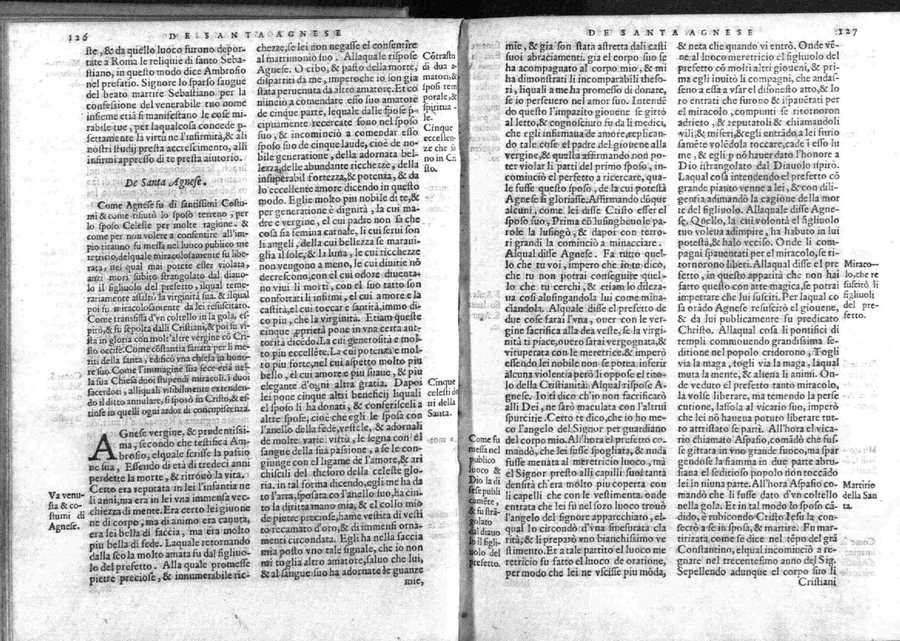 126
DE SANTA AGNESE
ste, & da quello luoco furono depor-
tate a Roma le reliquie di santo Seba-
stiano, in questo modo dice Ambrosio
nel prefatio. Signore lo sparso sangue
del beato martire Sebastiano. per la
confessione del venerabile tuo nome
insieme etiā si manifestano le cose mi-
rabile tue, per laqualcosa concede p-
fettamente la virtù ne l'infirmità, & alli
nostri studij presta accrescimento, alli
infirmi appresso di te presta aiutorio.
De Santa Agnese.
Come Agnese fu di santissimi Costu-
mi & come rifiutò lo sposo terreno, per
lo sposo Celeste per molte ragione. &
come per non volere a consentire all'im-
pio tiranno fu messa nel luoco publico me
retricio, del quale miracolosamente fu libe-
rata, nei qual mai potete esser violata,
anzi morì subito strangolato dal diauo-
lo il figliuolo del prefetto, ilqual teme-
rariamente assaltò la virginità sua. & ilqual
poi fu miracolosamente da lei resuscitato.
Come transissa d'vn coltello in la gola, es-
pirò, & fu sepolta dalli Cristiani, & poi fu vi-
sta in gloria con molt'altre vergine cō Cri-
sto occise. Come cōstantia sanata per li me-
riti della santa, edificò vna chiesa in hono-
re suo. Come l'immagine sua fece eria nel-
la sua Chiesa duoi stupendi miracoli. I duoi
sacerdoti, alliquali visibilmente extenden-
do il ditto annulare, si sposò in Cristo, & es-
tinse in quelli ogni ardor di concupiscenza.
AGnese vergine, & prudentissi-
ma, secondo che testifica Am-
brosio, elquale scrisse la passio
ne sua, Essendo di età di tredeci anni
perdette la morte, & ritrouò la vita.
Certo era reputata in lei l'infantia ne
li anni, ma era in lei vna immensa vec-
chiezza di mente. Era certo lei giouine
ne di corpo, ma di animo era canuta,
era lei bella di faccia, ma era molto
piu bella di fede. Laquale retornando
dalla scola molto amata fu dal figliuo-
lo del prefetto. Alla quale promesse
pietre preciose, & innumerabile ric-
Va venu-
sta & co-
stumi di
Agnese.
chezze, se lei non negasse el consentire
al matrimonio suo. Allaquale rispose
Agnese. O cibo, & pasto della morte,
dispartiti da me, imperoche io ion gia
stata peruenuta da altro amatore. Et co
minciò a comendare esso suo amatore
de cinque parte, lequale dalle spose p-
cipuamente recercate sono nel sposo
suo, & incominciò a comendar esso
sposo suo de cinque laude, cioè de no-
bile generatione, della adornata bel-
lezza, delle abundante ricchezze, della
insuperabil fortezza, & potenza, & da
lo eccellente amore dicendo in questo
modo. Eglie molto piu nobile di te, &
per generatione è dignità, la cui ma-
dre e vergine, el cui padre non sa che
cosa sia femina carnale, li cui serui son
li angeli, della cui bellezza se maraui-
glia il sole, & la luna, le cui ricchezze
non vengono a meno, le cui diuitie nō
decrescono, con el cui odore diuenta-
no viui li motti, con el suo tatto son
confottati li infirmi, el cui amore e la
castità, el cui toccar e santità, immo di-
co piu, che la virginità. Etiam queste
cinque pprietà pone in vna certa autto-
rità dicēdo. La cui generosità e mol-
to piu eccellēte. La cui potenza e mol-
to piu forte, nel cui aspetto molto piu
bello, el cui amore e piu suaue, & piu
elegante d'ogni altra gratia. Dapoi
lei pone cinque altri beneficij liquali
el sposo li ha donati, & conferiscelì a
altre spose, cioè che egli le sposa con
l'anello della fede, vestele, & adornale
de molte varie virtù, le segna con el
sangue della sua passione, a se le con-
giunge con el ligame de l'amore, & ar-
chiscelì del thesoro della celeste glo-
ria. in tal forma dicendo, egli me ha da
to l'arra, sposata co l'anello suo, ha cin-
to la diritta mano mia, & el collo mio
de pietre preciose, hame vestita di vesti
torrezzamato d'oro, & di immensi orna-
menti circondata. Egli ha nella faccia
mia posto vno tale signale, che io non
mi togli a altro amatore, saluo che lui,
& al sangue suo ha adornate le guanze
mie,
Cōtrasto
di dua a-
matori, &
sposi tem-
porale, &
spiritua-
le.
Cinque
eccellen-
ze che so
no in Cri
sto.
Cinque
celesti do
ni della
Santa.
DE SANTA AGNESE
127
mie, & gia son stata astretta dali casti
suoi abraciamenti. gia el corpo suo se
ha acompagnato al corpo mio, & mi
ha dimonstrati li incomparabili theso-
ri, liquali a me ha promesso di donare,
se io perseuero nel amor suo. Intendē
do questo l'impazito giouene se gittò
al letto, & cognosciuto fu da li medici,
che egli infirmaua de amore, replican-
do tale cose el padre del giouene alla
vergine, & quella affirmando non po-
ter violar li patti del primo sposo, in-
cominciò el prefetto a ricercare, qua-
le fusse questo sposo, de la cui potestà
Agnese si gloriasse. Affirmando dūque
alcuni, come lei disse Cristo esser el
sposo suo, Prima cō lusingheuole pa-
role la lusingò, & dapoi con terro-
ri grandi la cominciò a minacciare.
Alqual disse Agnese. Fa tutto quel-
lo che tu voi, impero che io te dico,
che tu non potrai conseguire quel-
lo che tu cerchi, & etiam lo dileza-
ua così alusingandola lui come mina-
ciandola. Alquale disse el prefetto de
due cose farai l'vna, ouer con le ver-
gine sacrifica alla dea veste, se la virgi-
nità ti piace, ouero sarai vergognata, &
vituperata con le meretrice. & imperò
essendo lei nobile non se potea inferir
alcuna violentia se li oppose el tito-
lo della Christianità. Alqual rispose A-
gnese. Io ti dico ch'io non sacrificarò
alli Dei, ne sarò maculata con l'altrui
spurcitie. Certo te dico, che io ho me-
co l'angelo del Signor per guardiano
del corpo mio. All'hora el prefetto co-
mandò, che lei fusse spogliata, & nuda
fusse menata al meretricio luoco, ma
el Signor prestò alli capelli suoi tanta
densità ch'era molto piu coperta con
li capelli che con le vestimenta. onde
entrata che lei fu nel sozo luoco trouò
l'angelo del signore apparechiato, el-
qual lo circondò d'vna smesurata cla
rità, & li preparò vno bianchissimo ve
stimento. Et a tale partito el luoco me
retricio fu fatto el luoco de oratione,
per modo che lei ne vscisse piu mōda,
Come fu
messa nel
publico
luoco &
Dio la di
fese publi
camēte,
& fu strā
golato
dal diauo
lo il figli-
uolo del
prefetto.
& neta che quando vi entrò. Onde vē-
ne al luoco meretricio el figliuolo del
prefetto cō molti altri gioueni, & pri-
ma egli inuitò li compagni, che andas-
seno a essa a vsar el disonesto atto, & lo
ro entrati che furono & ispauētati per
el miracolo, compunti se ritornoron
adrieto, & reputatoli & chiamandoli
vili, & miseri, & egli entrādo a lei furio
samēte volēdola toccare, cade i esso lu
me, & egli p nō hauer dato l'honore a
Dio istrangolato dal Diauolo spirò.
Laqual cosa intendendo el prefetto cō
grande pianto venne a lei, & con dili-
gentia adimandò la cagione della mor
te del figliuolo. Allaquale disse Agne-
se, Quello, la cui volontà el figliuolo
tuo voleua adimpire, ha habuto in lui
potestà, & halo vcciso. Onde li com-
pagni spauentati per el miracolo, se ri-
tornorono liberi. Allaqual disse el pre-
fetto, in questo apparirà che non hai
fatto questo con arte magica, se potrai
impetrare che lui susciti. Per laqual co
sa orādo Agnese resuscitò el giouene,
& da lui publicamente fu predicato
Christo. Allaqual cosa li pontifici di
templi commouendo grandissima se-
ditione nel popolo cridorono, Togli
via la maga, togli via la maga, laqual
muta la mente, & aliena li animi. On-
de veduto el prefetto tanto miracolo,
la volse liberare, ma temendo la perse
cutione, lassola al vicario suo, imperò
che lei nō haueua potuto liberare tut-
to attristato se partì. All'hora el vica-
rio chiamato Aspasio, comādò che fus
se gittata in vno grande fuoco, ma spar
gendose la fiamma in due parte abru-
siaua el seditioso popolo non toccādo
lei in niuna parte. All'hora Aspasio co-
mandò che li fusse dato d'vn coltello
nella gola. Et in tal modo lo sposo cā-
dido, e rubicōdo Cristo Iesu la conse-
crò a se in sposa, & martire. Fu mar-
tirizata, come se dice nel tēpo del grā
Constantino, elqual incominciò a re-
gnare nel trecentesimo anno del Sig.
Sepellendo adunque el corpo suo li
Cristiani
Miraco-
lo, che re
suscitò il
figliuoli
del pre-
fetto.
Martirio
della San
ta.